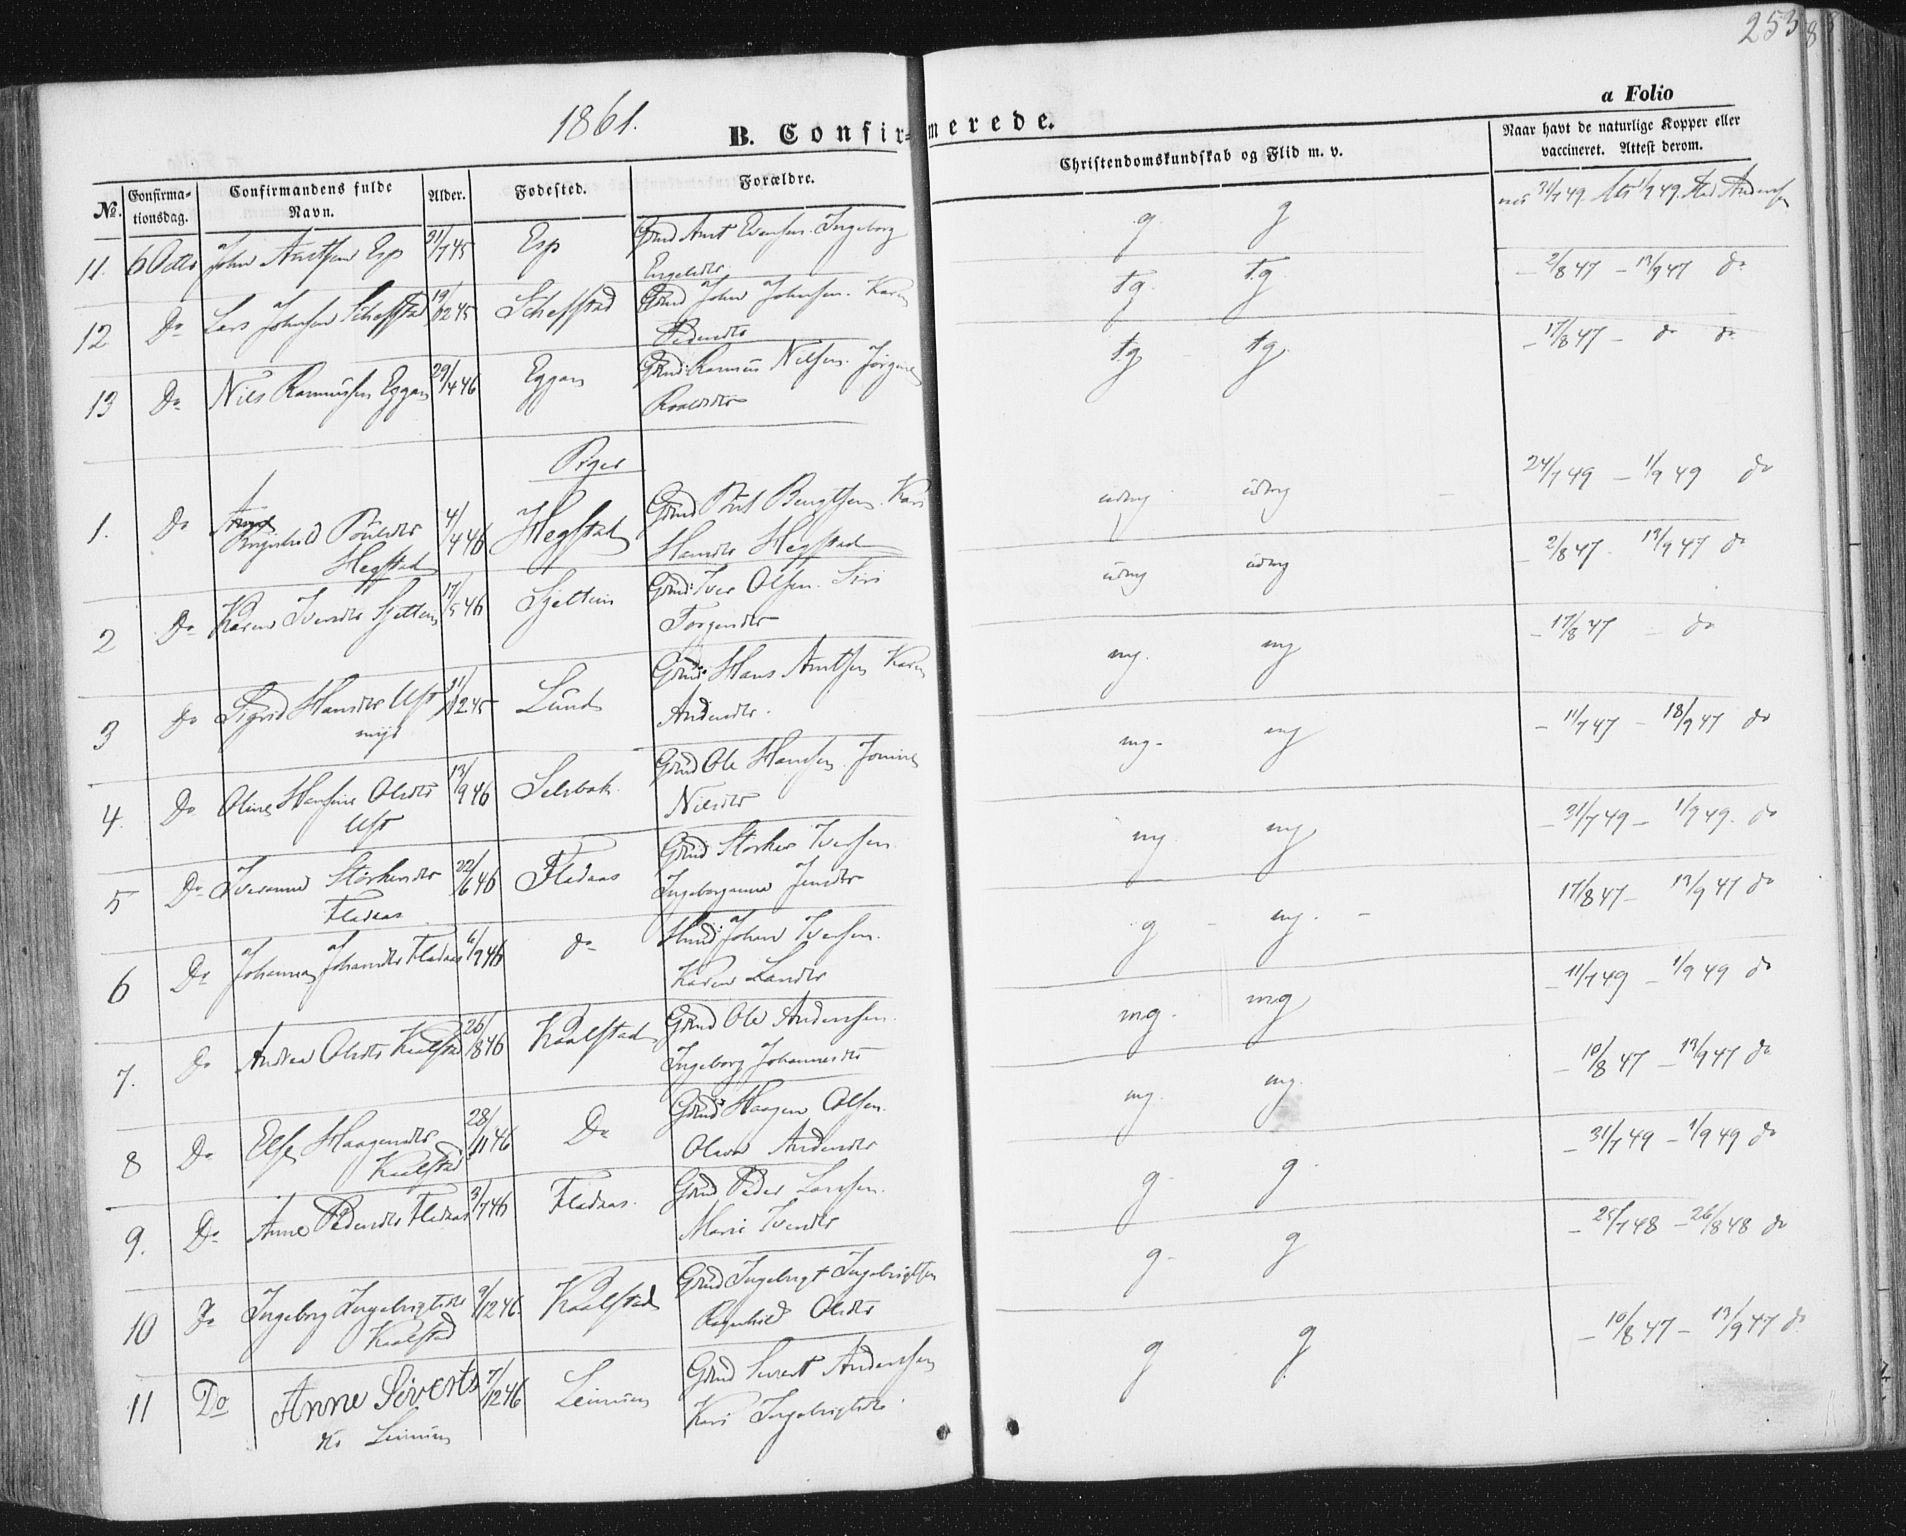 253
8
1861.
B. Confirmerede.
a Folio
No. Confirmationsdag. Confirmandens fulde Navn. Alder. Fødested. Forældre. Christendomskundskab og Flid m. v. Naar havt de naturlige Kopper eller vaccineret. Attest derom.
11. 6 Octbr John Arntsen Esp 21/7 45 Esp Grnd Arnt Evensen. Ingeborg g. g 31/7 49. 1/9 49.
12 Do Lars Johnsen Scheffstad 19/12 45 Scheffstad Grnd John Johnsen. Karen Pedersdtr tg. tg. – 2/8 47 – 13/9 47 do
13 Do Nils Rasmussen Eggan 29/4 46 Eggan Grnd: Rasmus Nilsen. Jørgine Roaldsdtr tg tg. – 17/8 47 – do do
Piger
1. Do Ragnhild Poulsdtr Hegstad 4/4 46 Hegstad Grnd Poul Bengtsen. Kari Hansdtr Hegstad udmg udmg 24/7 49 – 1/9 49 do
2 Do Karen Iversdtr Sjettem 17/5 46 Sjettem Grnd: Iver Olsen. Siri Torgersdtr udmg udmg – 2/8 47 – 13/9 47 do
3 Do Sigrid Hansdtr Ust 11/12 45 Lund Grnd: Hans Arntsen Karen Andersdtr. mg. mg – 17/8 47 – do
4. Do Oline Hansine Olsdtr Ust 13/9 46 Selsbak. Grnd Ole Hansen. Jonine Nilsdtr mg. mg – 11/7 47 – 18/9 47 do
5 Do Iveranna Størkersdtr Fladaas 22/6 46 Fladaas Grnd Størker Iversen. Ingeborganna Jensdtr mg. mg – 31/7 49 – 1/9 49. do
6 Do Johanna Johansdtr Fladaas 6/9 46 do Hmd: Johan Iversen. Karen Larsdtr g – mg. – 17/8 47 – 13/9 47 do
7. Do Andrea Olsdtr Kaalstad 26/8 46 Kaalstad Grnd Ole Andersen. Ingeborg Johannesdtr mg. mg – 11/7 49 – 1/9 49 do
8 Do Else Haagensdtr Kaalstad 28/11 46 Do Grnd: Haagen Olsen. Olava Andersdtr mg. mg. – 10/8 47 – 13/9 47 do
9. Do Anne Pedersdtr Fladaas 3/7 46 Fladaas. Grnd Peder Larsen. Marie Iversdtr g. g. – 31/7 49 – 1/9 49 do
10 Do Ingeborg Ingebrigtsdtr Kaalstad 9/12 46. Kaalstad Grnd Ingebrigt Ingebrigtsen Ragnhild Olsdtr g. g – 25/7 48 – 26/8 48 do
11 Do Anne Siverts dtr Leinum 7/12 46 Leinum Grnd Sivert Andersen Kari Ingebrigtsdtr g g – 10/8 47 – 13/9 47 do